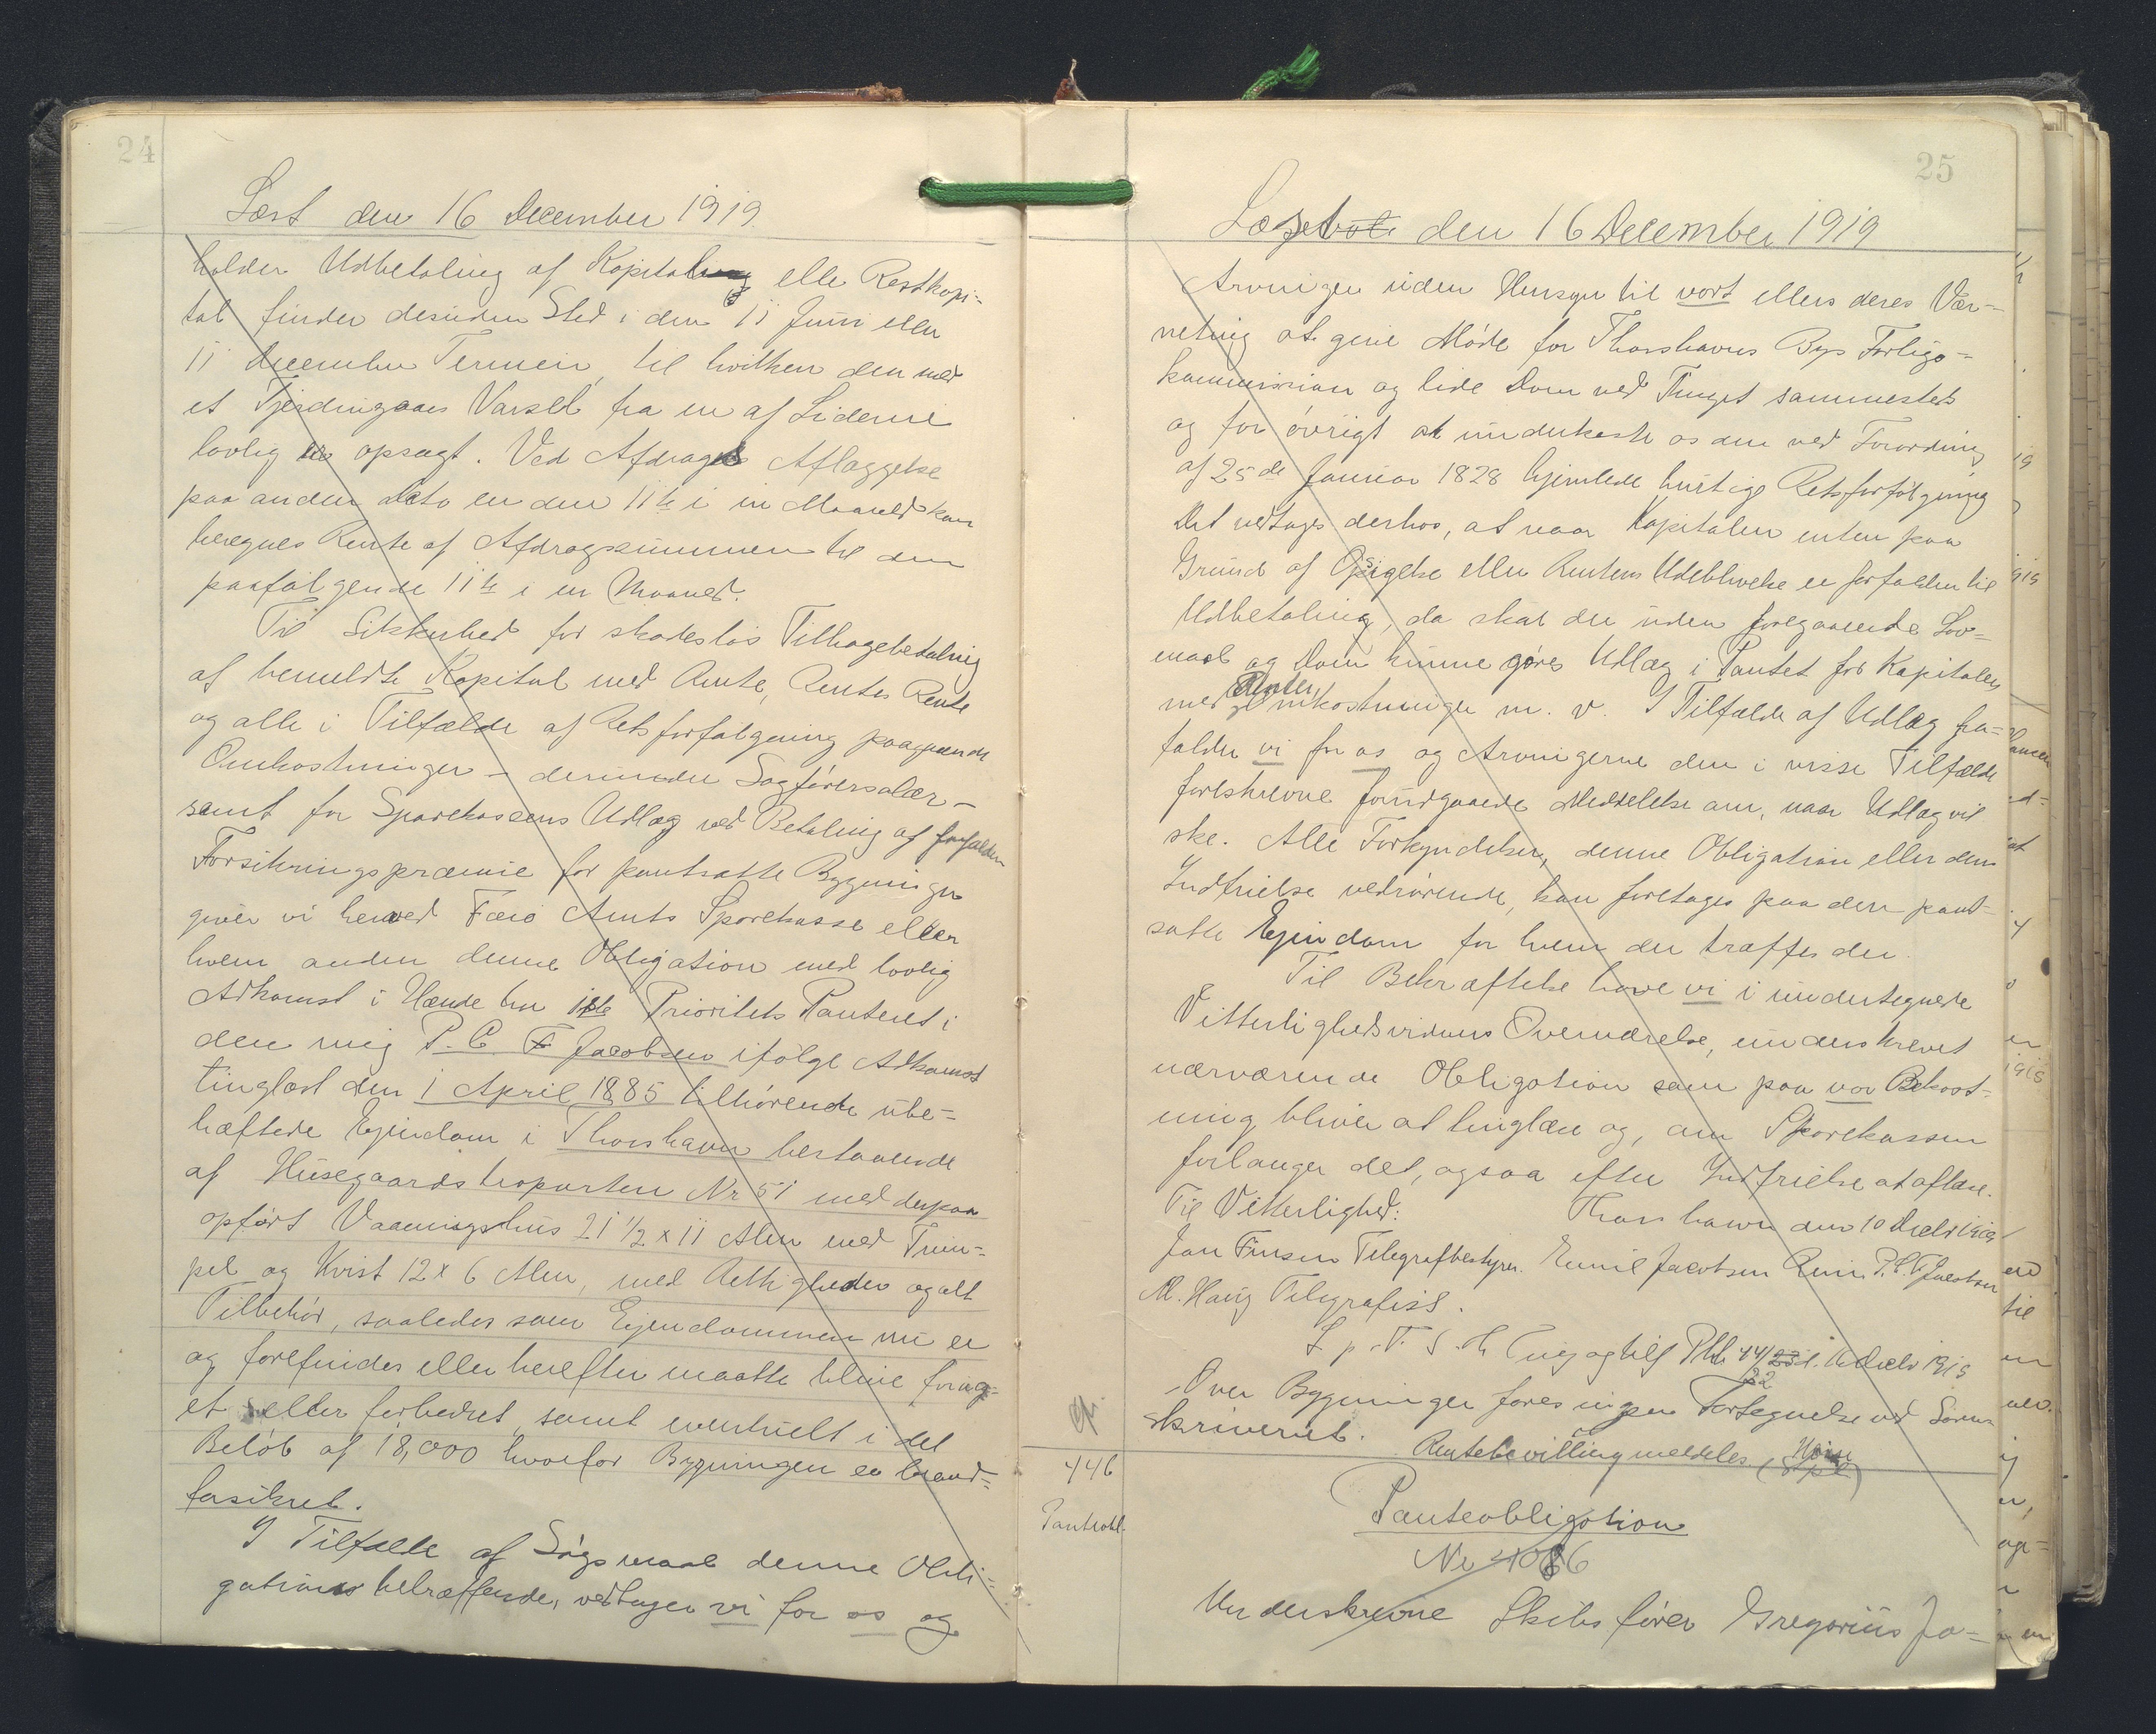 24
Læst den 16 December 1919.
holder Udbetaling af Kapitalen elle Restkapi-
tal finder desuden Sted i den 11 Juni eller
11 December Termin, til hvilken den med
et Fjerdingaars Varsel fra en af Siderne
lovlig er opsagt. Ved Afdrags Aflæggelse
paa anden Dato en den 11te i en Maaned kan
beregnes Rente af Afdragssummen til den
paafølgende 11te i en Maaned.
Til Sikkerhed for skadesløs Tilbagebetaling
af bemeldte Kapital med Rente, Rentes Rente
og alle i Tilfælde af Retsforfølgning paagaaende
Omkostninger – derunder Sagførersalær –
samt for Sparekassens Udlæg ved Betaling af forfalden
Forsikringspræmie for pantsatte Bygninger
giver vi herved Færø Amts Sparekasse eller
hvem anden denne Obligation med lovlig
Adkomst i Hænde har 1ste Prioritets Panteret i
den mig P. C. F Jacobsen ifølge Adkomst
tinglæst den 1 April 1885 tilhørende ube-
hæftede Ejendom i Thorshavn bestaaende
af Husegaardstroparten Nr 51 med derpaa
opført Vaaningshus 21 1/2 x 11 Alen med Trim-
pel og Kvist 12 x 6 Alen, med Rettigheder og alt
Tilbehør, saaledes som Ejendommen nu er
og forefindes eller herefter maatte blive forøg-
et eller forbedret, samt eventuelt i det
Beløb af 18,000 hvorfor Bygningen er brand-
forsikret.
I Tilfælde af Søgsmaal denne Obli-
gations betræffende, vedtager vi for os og
25
Læsebot den 16 December 1919
Arvinger uden Hensyn til vort ellers deres Vær-
neting at give Møde for Thorshavns Bys Forligs-
kommission og lide Dom ved Tinget sammesteds
og for øvrigt at underkaste os den ved Forordning
af 25de Januar 1828 hjemlede hurtige Retsforfølgning
Det vedtages derhos, at naar Kapitalen enten paa
Grund af Opsigelse eller Rentens Udeblivelse er forfalden til
Udbetaling, da skal der uden foregaaende Lov-
maal og Dom kunne gøres Udlæg i Pantet for Kapitalen
med Renter, Omkostninger m. v. I Tilfælde af Udlæg fra-
falder vi for os og Arvingerne den i visse Tilfælde
forlskrevne forudgaaede Meddelelse om, naar Udlæg vil
ske. Alle Forkyndelser, denne Obligation eller dens
Indfrielse vedrørende, kan foretages paa den pant-
satte Ejendom for hvem der træffes der.
Til Bekræftelse have vi i undertegnede
Vitterlighedsvidners Overværelse, underskrevet
nærværende Obligation som paa vor Bekost-
ning bliver at tinglæse og, om Sparekassen
forlanger det, ogsaa efter Indfrielse at aflæse.
Til Vitterlighed: Thorshavn den 10 Decbr 1919
Jon Finsen Telegrafbestyrer. Emil Jacobsen P. C. F Jacobsen
M. Haug Telegrafist.
Over Bygninger føres ingen Fortegnelse ved Soren-
skriveriet. Rentebevilling meddeles
446
Panteobl.
Panteobligation
Nr 4086
Underskrevne Skibsfører Gregorius Ja-